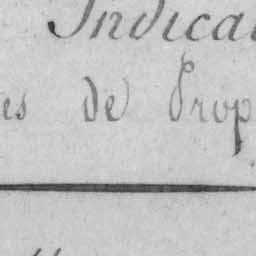 Indica
es de Prop